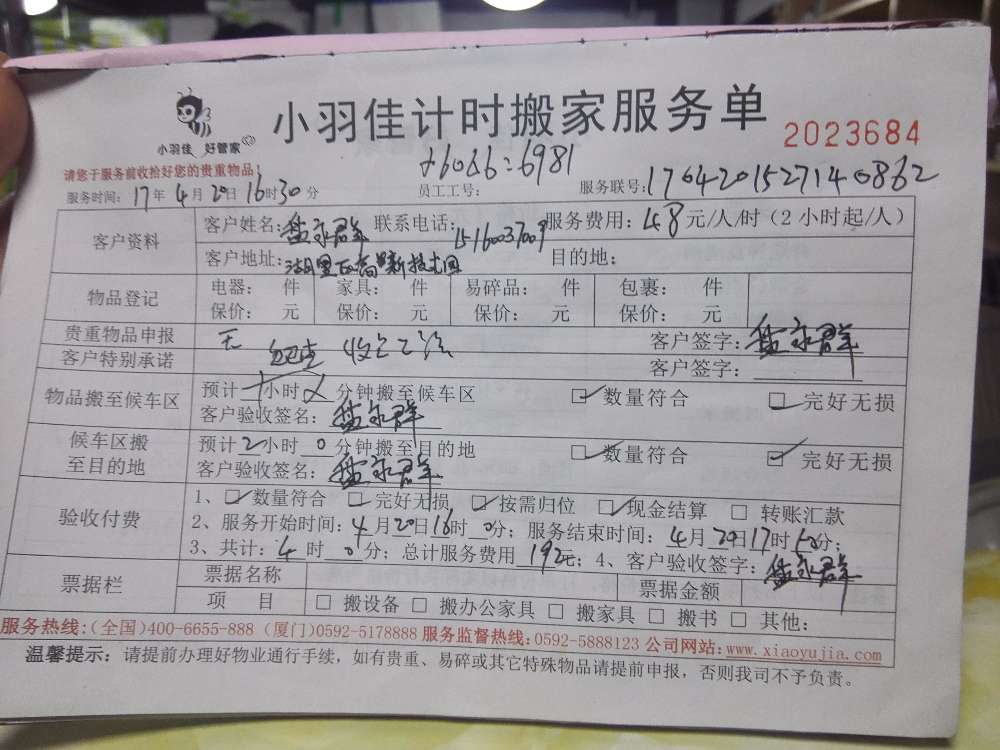 小羽佳计时搬家服务单
小羽佳 好管家
2023684
请您于服务前收拾好您的贵重物品!
服务时间: 17年4月20日16时30分 员工工号: 6981 服务联号: 1704201527140862
客户资料 客户姓名: 联系电话: 15160037009 服务费用: 48元/人/时(2小时起/人)
客户地址: 湖里区高新技术园 目的地:
物品登记 电器: 件 家具: 件 易碎品: 件 包裹: 件
保价: 元 保价: 元 保价: 元 保价: 元
贵重物品申报 无 客户签字:
客户特别承诺 客户签字:
物品搬至候车区 预计 小时 分钟搬至候车区 数量符合 完好无损
客户验收签名:
候车区搬至目的地 预计2小时0分钟搬至目的地 数量符合 完好无损
客户验收签名:
验收付费 1、数量符合 完好无损 按需归位 现金结算 转账汇款
2、服务开始时间: 4月20日16时0分; 服务结束时间: 4月20日17时50分;
3、共计: 4时0分; 总计服务费用 192元; 4、客户验收签字:
票据栏 票据名称 票据金额
项 目 搬设备 搬办公家具 搬家具 搬书 其他:
服务热线:(全国)400-6655-888 (厦门)0592-5178888 服务监督热线:0592-5888123 公司网站:www.xiaoyujia.com
温馨提示: 请提前办理好物业通行手续,如有贵重、易碎或其它特殊物品请提前申报,否则我司不予负责。